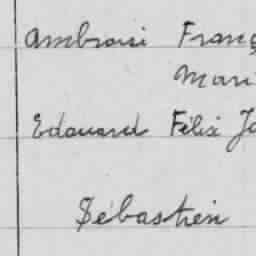 Ambroisi Franç
Mari
Edouard Félix Jo
Sébastien